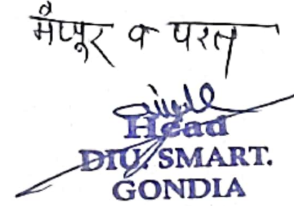 मॅप्पूर व परत
Head
DIU. SMART.
GONDIA